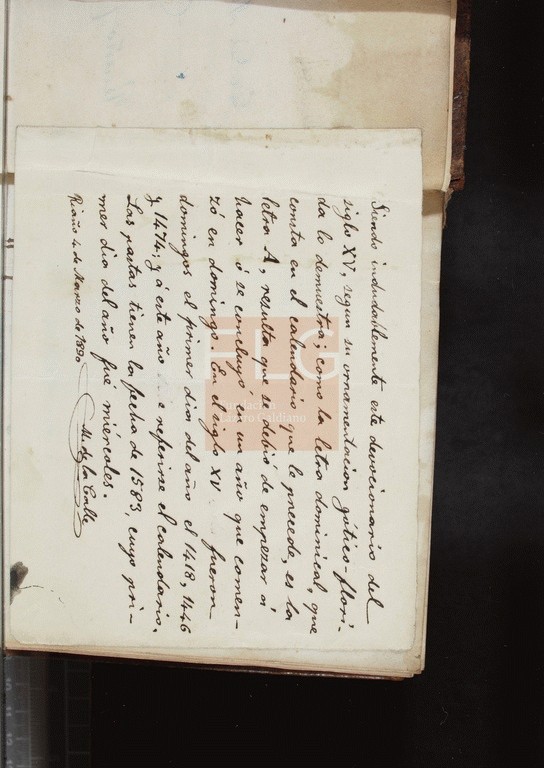 Siendo indudablemente este devocionario del
siglo XV, segun su ornamentacion gótico-flori-
da lo demuestra; como la letra dominical, que
consta en el calendario que le precede, es la
letra A, resulta que se debió de empezar á
hacer ó se concluyo en un año que comen-
zó en domingo. En el siglo XV fueron
domingos el primer dia del año el 1418, 1446
y 1474; y á este año referirse el calendario.
Las pastas tienen la fecha de 1583, cuyo pri-
mer dia del año fue miércoles.
Riaño 4 de Marzo de 1890
M. de la Calle
FLG
Fundación
Lázaro Galdiano